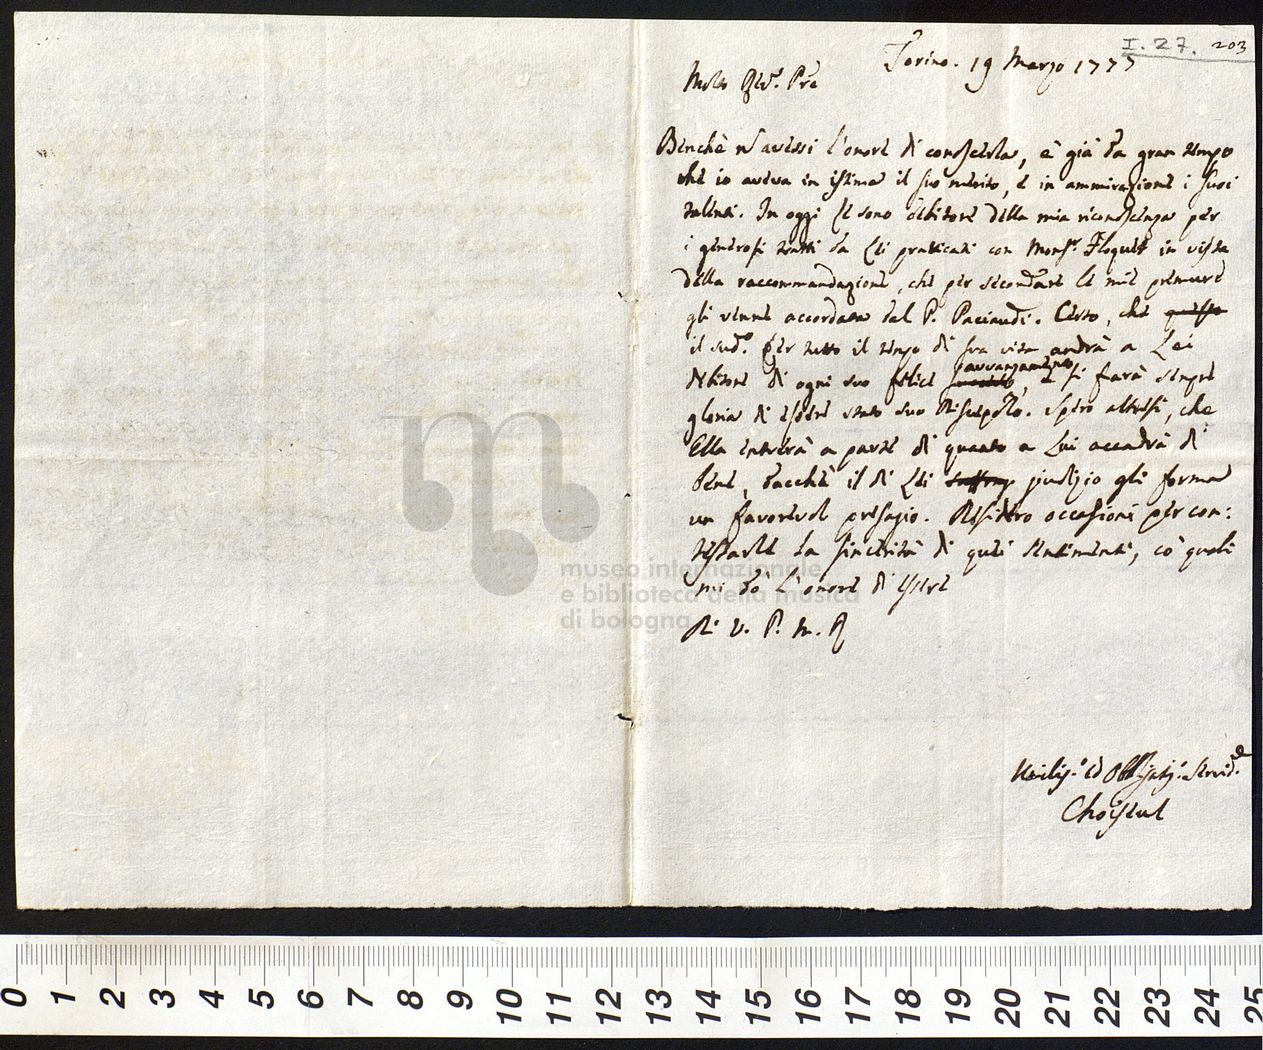 I. 27. 203
Torino. 19 Marzo 1775
Molto Rev.º Pre
Benchè n'avessi l'onore di conoscerla, è già da gran tempo
che io aveva in istima il suo merito, e in ammirazione i suoi
talenti. In oggi Le sono debitore della mia riconoscenza per
i generosi tratti da Lei praticati con Mons.r Floquet in vista
della raccommandazione, che per secondare le mie premure
gli venne accordata dal P. Paciaudi. Certo, che questo
il sud.º per tutto il tempo di sua vita andrà a Lei
debitore di ogni suo felice avvanzamento, e si farà sempre
gloria di essere stato suo Discepolo. Spero altresì, che
Ella entrerà a parte di quanto a Lui accadrà di
bene, dacchè il di Lei giudizio gli forma
un favorevol presagio. Desidero occasioni per con:
testarle la sincerità di quei sentimenti, co' quali
mi dò l'onore di essere
Di V. P. M. R
Umilis.º ed Obbligatis.º Servid.e
Choiseul
museo internazionale
e biblioteca della musica
di bologna
0 1 2 3 4 5 6 7 8 9 10 11 12 13 14 15 16 17 18 19 20 21 22 23 24 25